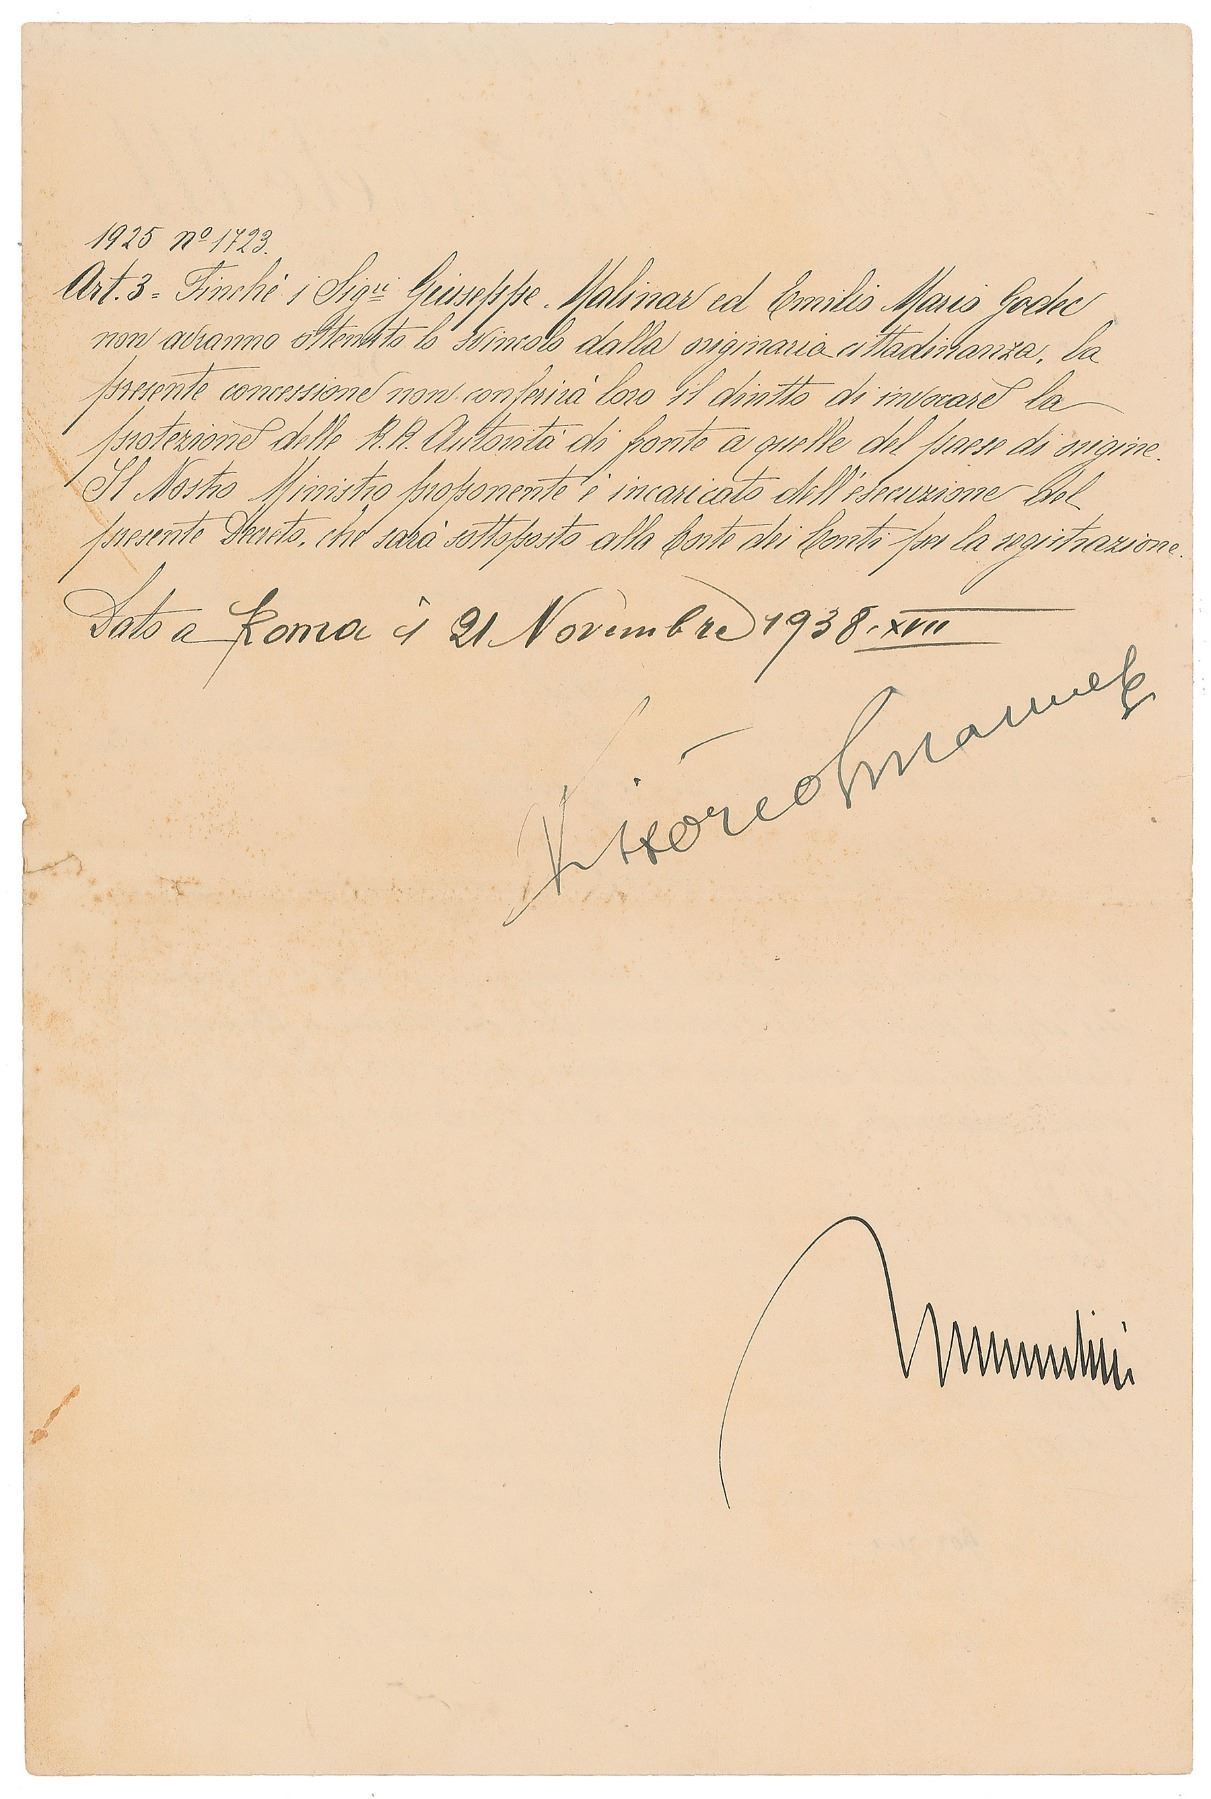 1925 nº 1723.
Art. 3 = Finchè i Sigri Giuseppe Malinar ed Emilio Mario Godec
non avranno ottenuto lo svincolo dalla originaria cittadinanza, la
presente concessione non conferirà loro il diritto di invocare la
protezione delle R.R. Autorità di fronte a quelle del paese di origine.
Il Nostro Ministro proponente è incaricato dell'esecuzione del
presente Decreto, che sarà sottoposto alla Corte dei Conti per la registrazione.
Dato a Roma il 21 Novembre 1938. XVII
Vittorio Emanuele
Mussolini